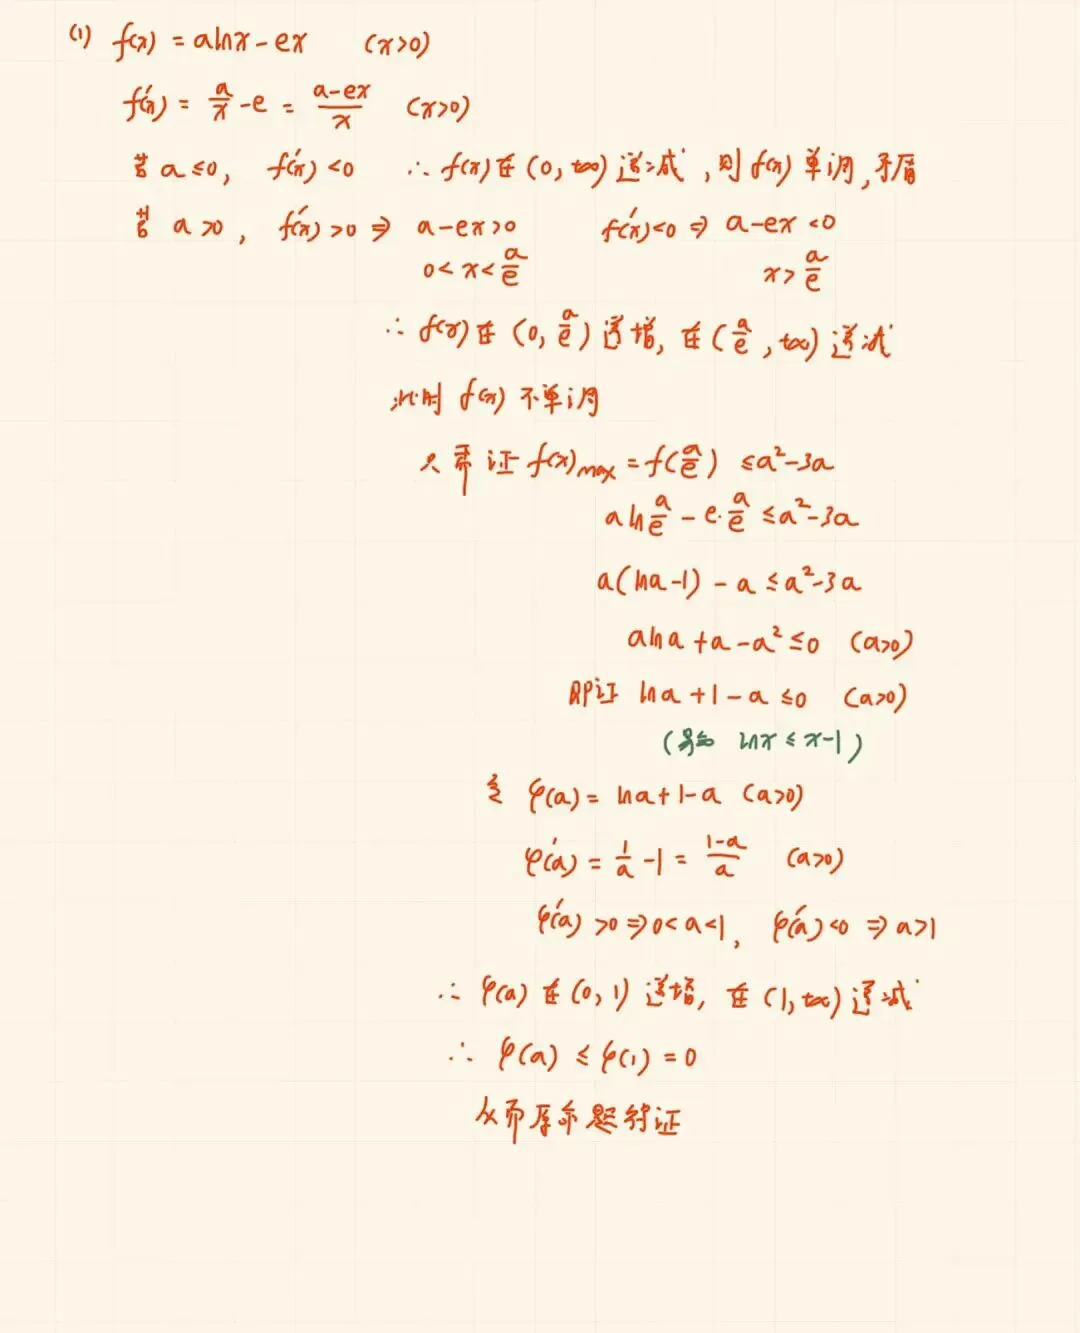 (1) f(x) = alnx - ex (x>0)
f'(x) = a/x - e = (a-ex)/x (x>0)
若 a≤0, f'(x)<0 ∴ f(x)在(0,+∞)递减,则f(x)单调,矛盾
若 a>0, f'(x)>0 ⇒ a-ex>0 f'(x)<0 ⇒ a-ex<0
0<x<a/e x>a/e
∴ f(x)在(0,a/e)递增,在(a/e,+∞)递减
此时 f(x) 不单调
只需证 f(x)max = f(a/e) ≤a²-3a
aln a/e - e·a/e ≤a²-3a
a(lna-1) - a ≤a²-3a
alna+a-a²≤0 (a>0)
即证 lna+1-a ≤0 (a>0)
(易知 lnx≤x-1)
令 φ(a)= lna+1-a (a>0)
φ'(a) = 1/a -1 = (1-a)/a (a>0)
φ'(a)>0 ⇒0<a<1, φ'(a)<0 ⇒ a>1
∴ φ(a)在(0,1)递增,在(1,+∞)递减
∴ φ(a) ≤ φ(1) = 0
从而原命题得证